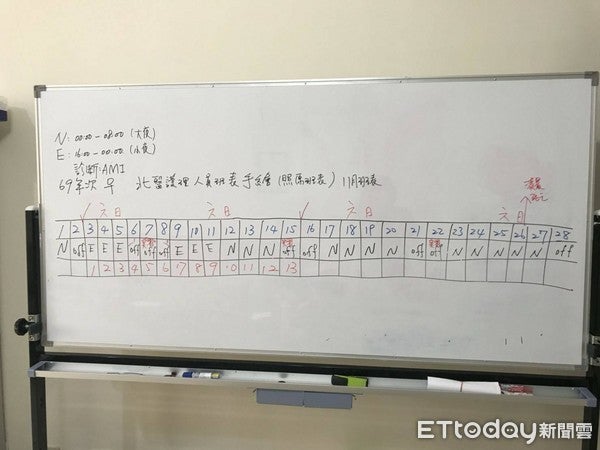 N: 00:00-08:00 (大夜)
E: 16:00-00:00 (小夜)
診斷:AMI
69年次 早 北醫護理人員班表手繪(照原班表) 11月班表
✓ 六日 六日 六日 六日
1 2 3 4 5 6 7 8 9 10 11 12 13 14 15 16 17 18 19 20 21 22 23 24 25 26 27 28
N off E E E off off off E E E N N N off off N N N N off off N N N N N off
1 2 3 4 5 6 7 8 9 10 11 12 13
11
ETtoday新聞雲